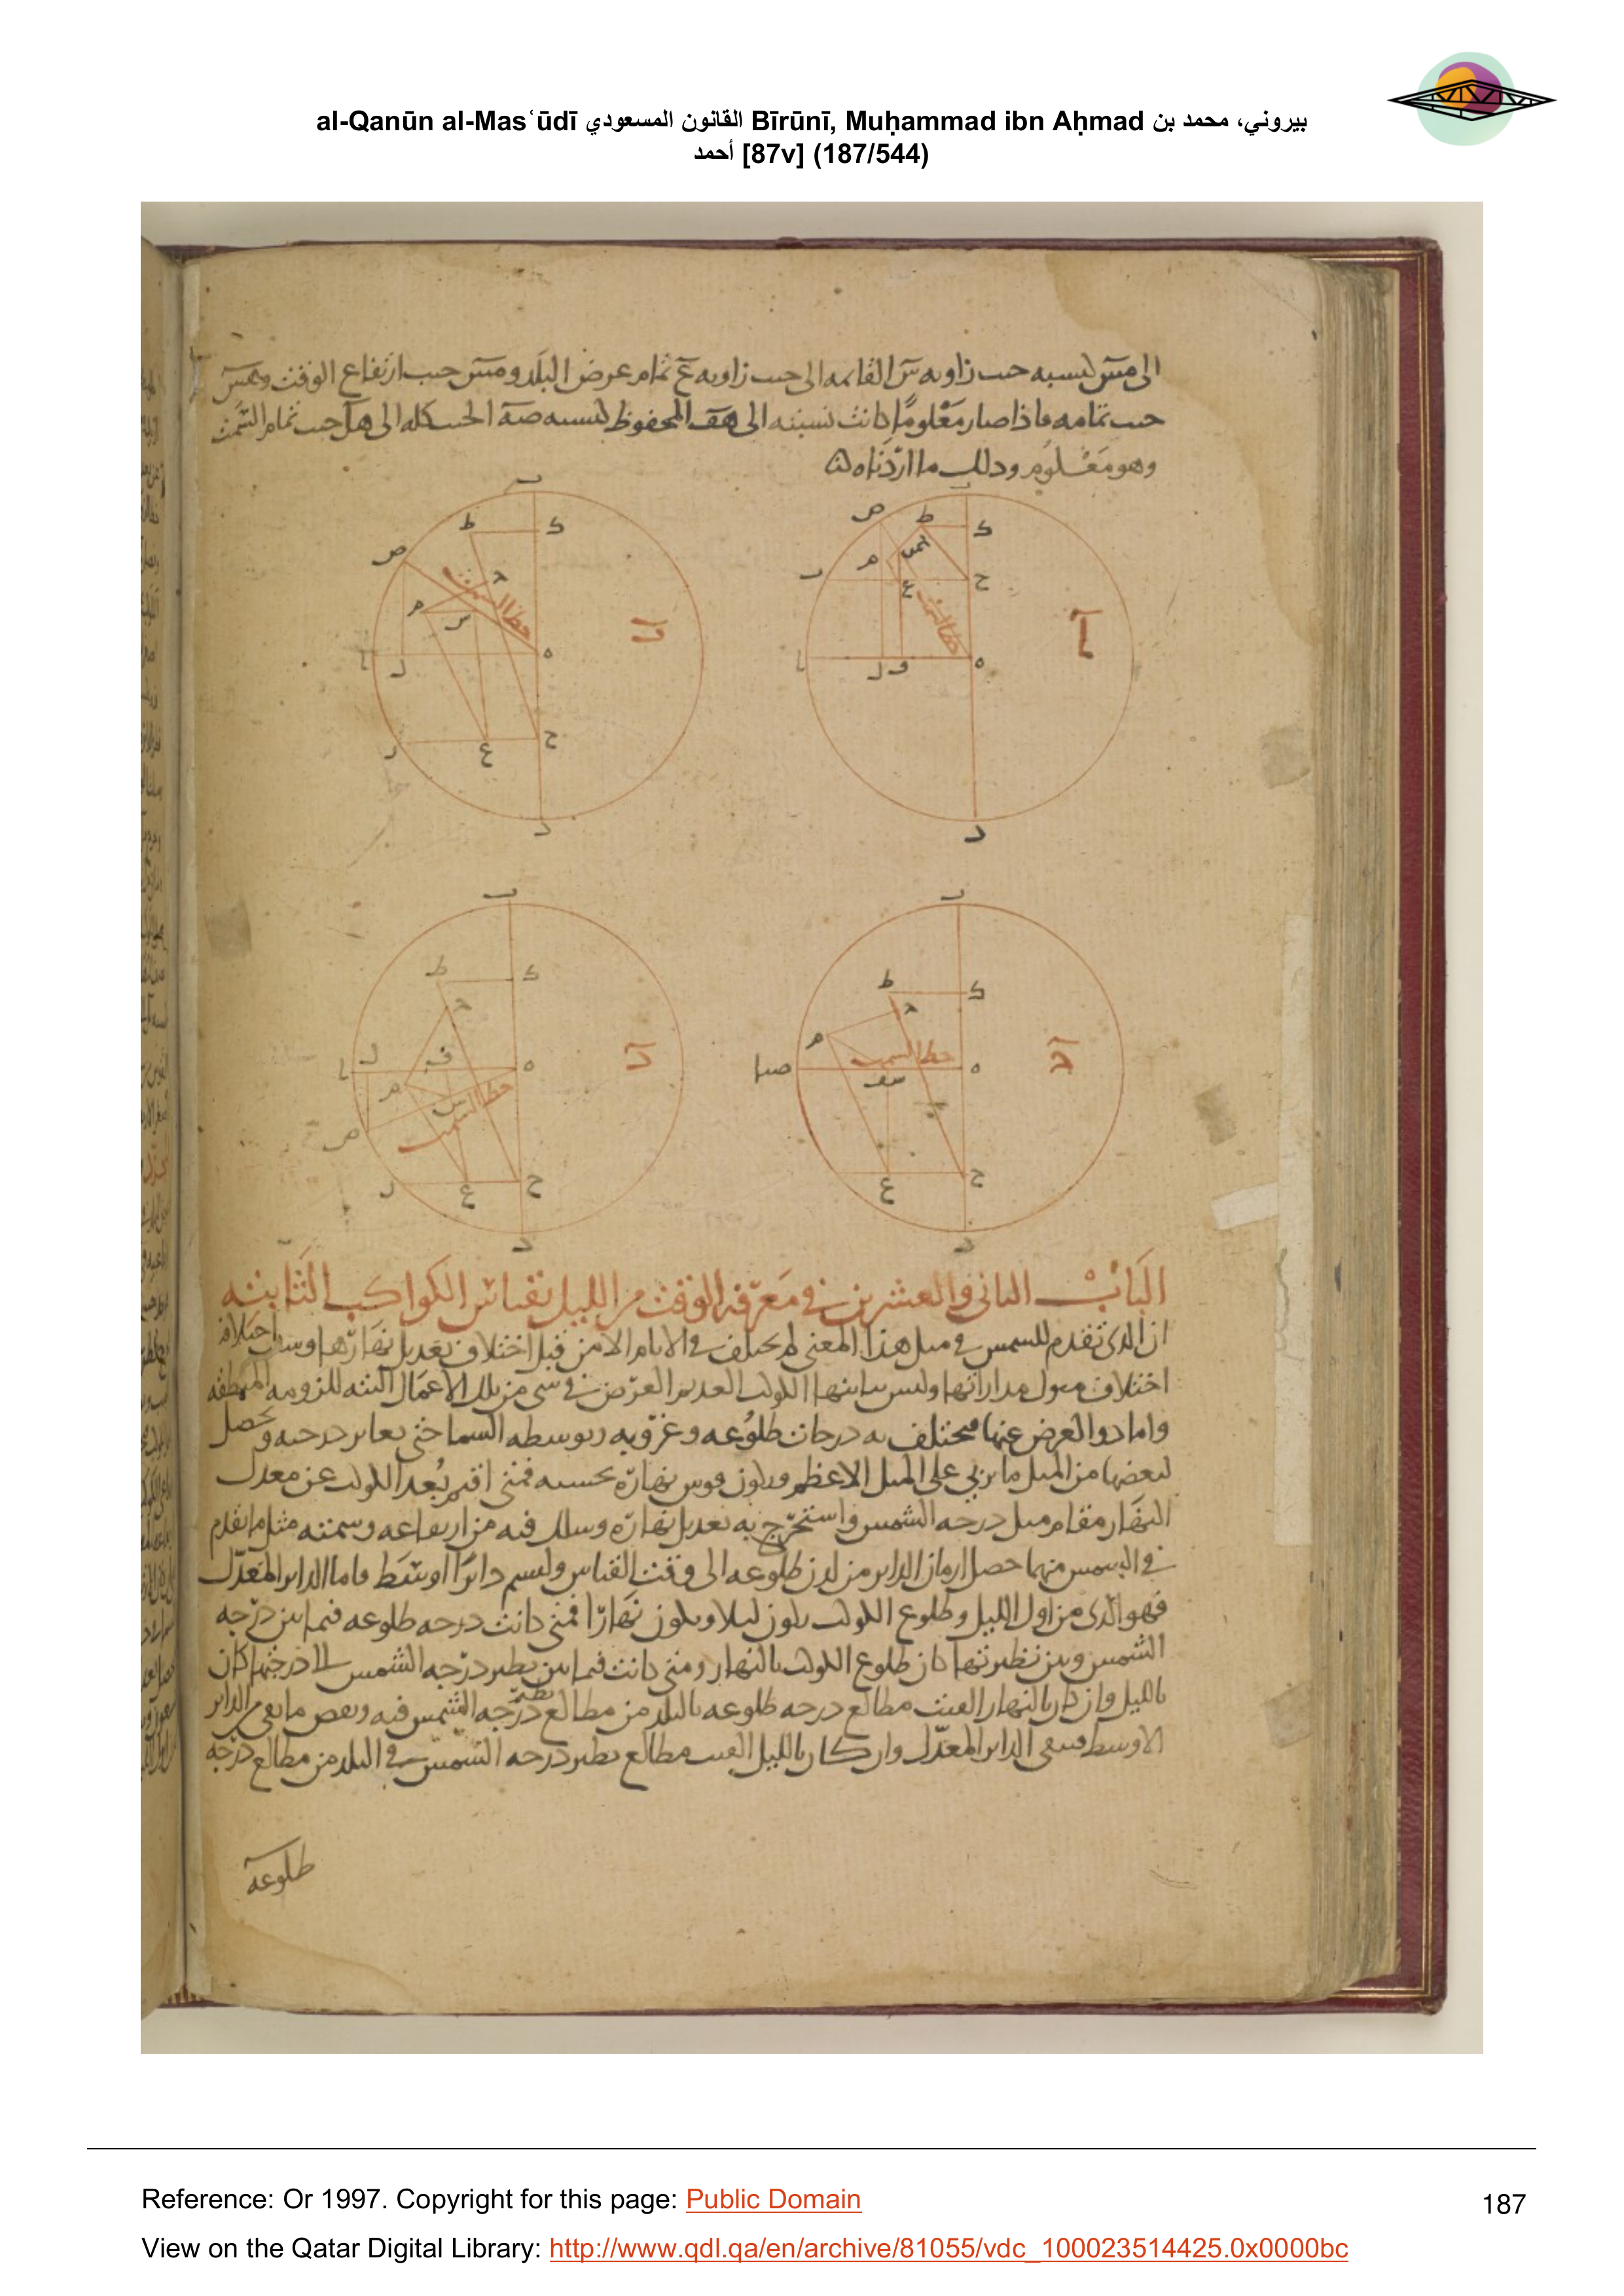 al-Qanūn al-Masʿūdī القانون المسعودي Bīrūnī, Muḥammad ibn Aḥmad بيروني، محمد بن
أحمد [87v] (187/544)
الى مس كنسبه جيب زاويه س القائمه الى جيب زاويه ع تمام عرض البلد ومس جيب ارتفاع الوقت وهس
جيب تمامه فاذا صار معلومًا كانت نسبته الى هف المحفوظ كنسبه صه الجيب كله الى هل جيب تمام السمت
وهو معلوم وذلك ما اردناه
خط السمت
خط السمت
خط السمت
خط السمت
الباب الثانى والعشرين فى معرفه الوقت من الليل بقياس الكواكب الثابته
ان الذى تقدم للشمس فى مثل هذا المعنى لم يختلف فى الايام الا من قبل اختلاف تعديل نهارها
اختلاف ميول مداراتها وليس الكوكب العديم العرض فى شى من تلك الاعمال البته للزومه المنطقه
واما ذوا العرض عنها فيختلف به درجات طلوعه وغروبه وتوسطه السما حتى يغاير درجته ويحصل
لبعضها من الميل ما يربى على الميل الاعظم ويكون قوس نهاره بحسبه فمتى اقيم بُعد الكوكب عن معدل
النهار مقام ميل درجه الشمس واستخرج به تعديل نهاره وسلك فيه من ارتفاعه وسمته مثل ما تقدم
فى الشمس منهما حصل ازمان الداير من لدن طلوعه الى وقت القياس وليسم دائرًا اوسط فاما الداير المعدل
فهو الذى من اول الليل وطلوع الكوكب يكون ليلا ويكون نهارًا فمتى كانت درجه طلوعه فيما بين درجه
الشمس وبين نظيرتها كان طلوع الكوكب بالنهار ومتى كانت فيما بين نظير درجه الشمس الى درجتها كان
بالليل فان كان بالنهار القيت مطالع درجه طلوعه بالبلد من مطالع نظير درجه الشمس فيه ونقص ما بقى من الداير
الاوسط فيبقى الداير المعدل وان كان بالليل القيت مطالع نظير درجه الشمس فى البلد من مطالع درجه
طلوعه
Reference: Or 1997. Copyright for this page: Public Domain
187
View on the Qatar Digital Library: http://www.qdl.qa/en/archive/81055/vdc_100023514425.0x0000bc